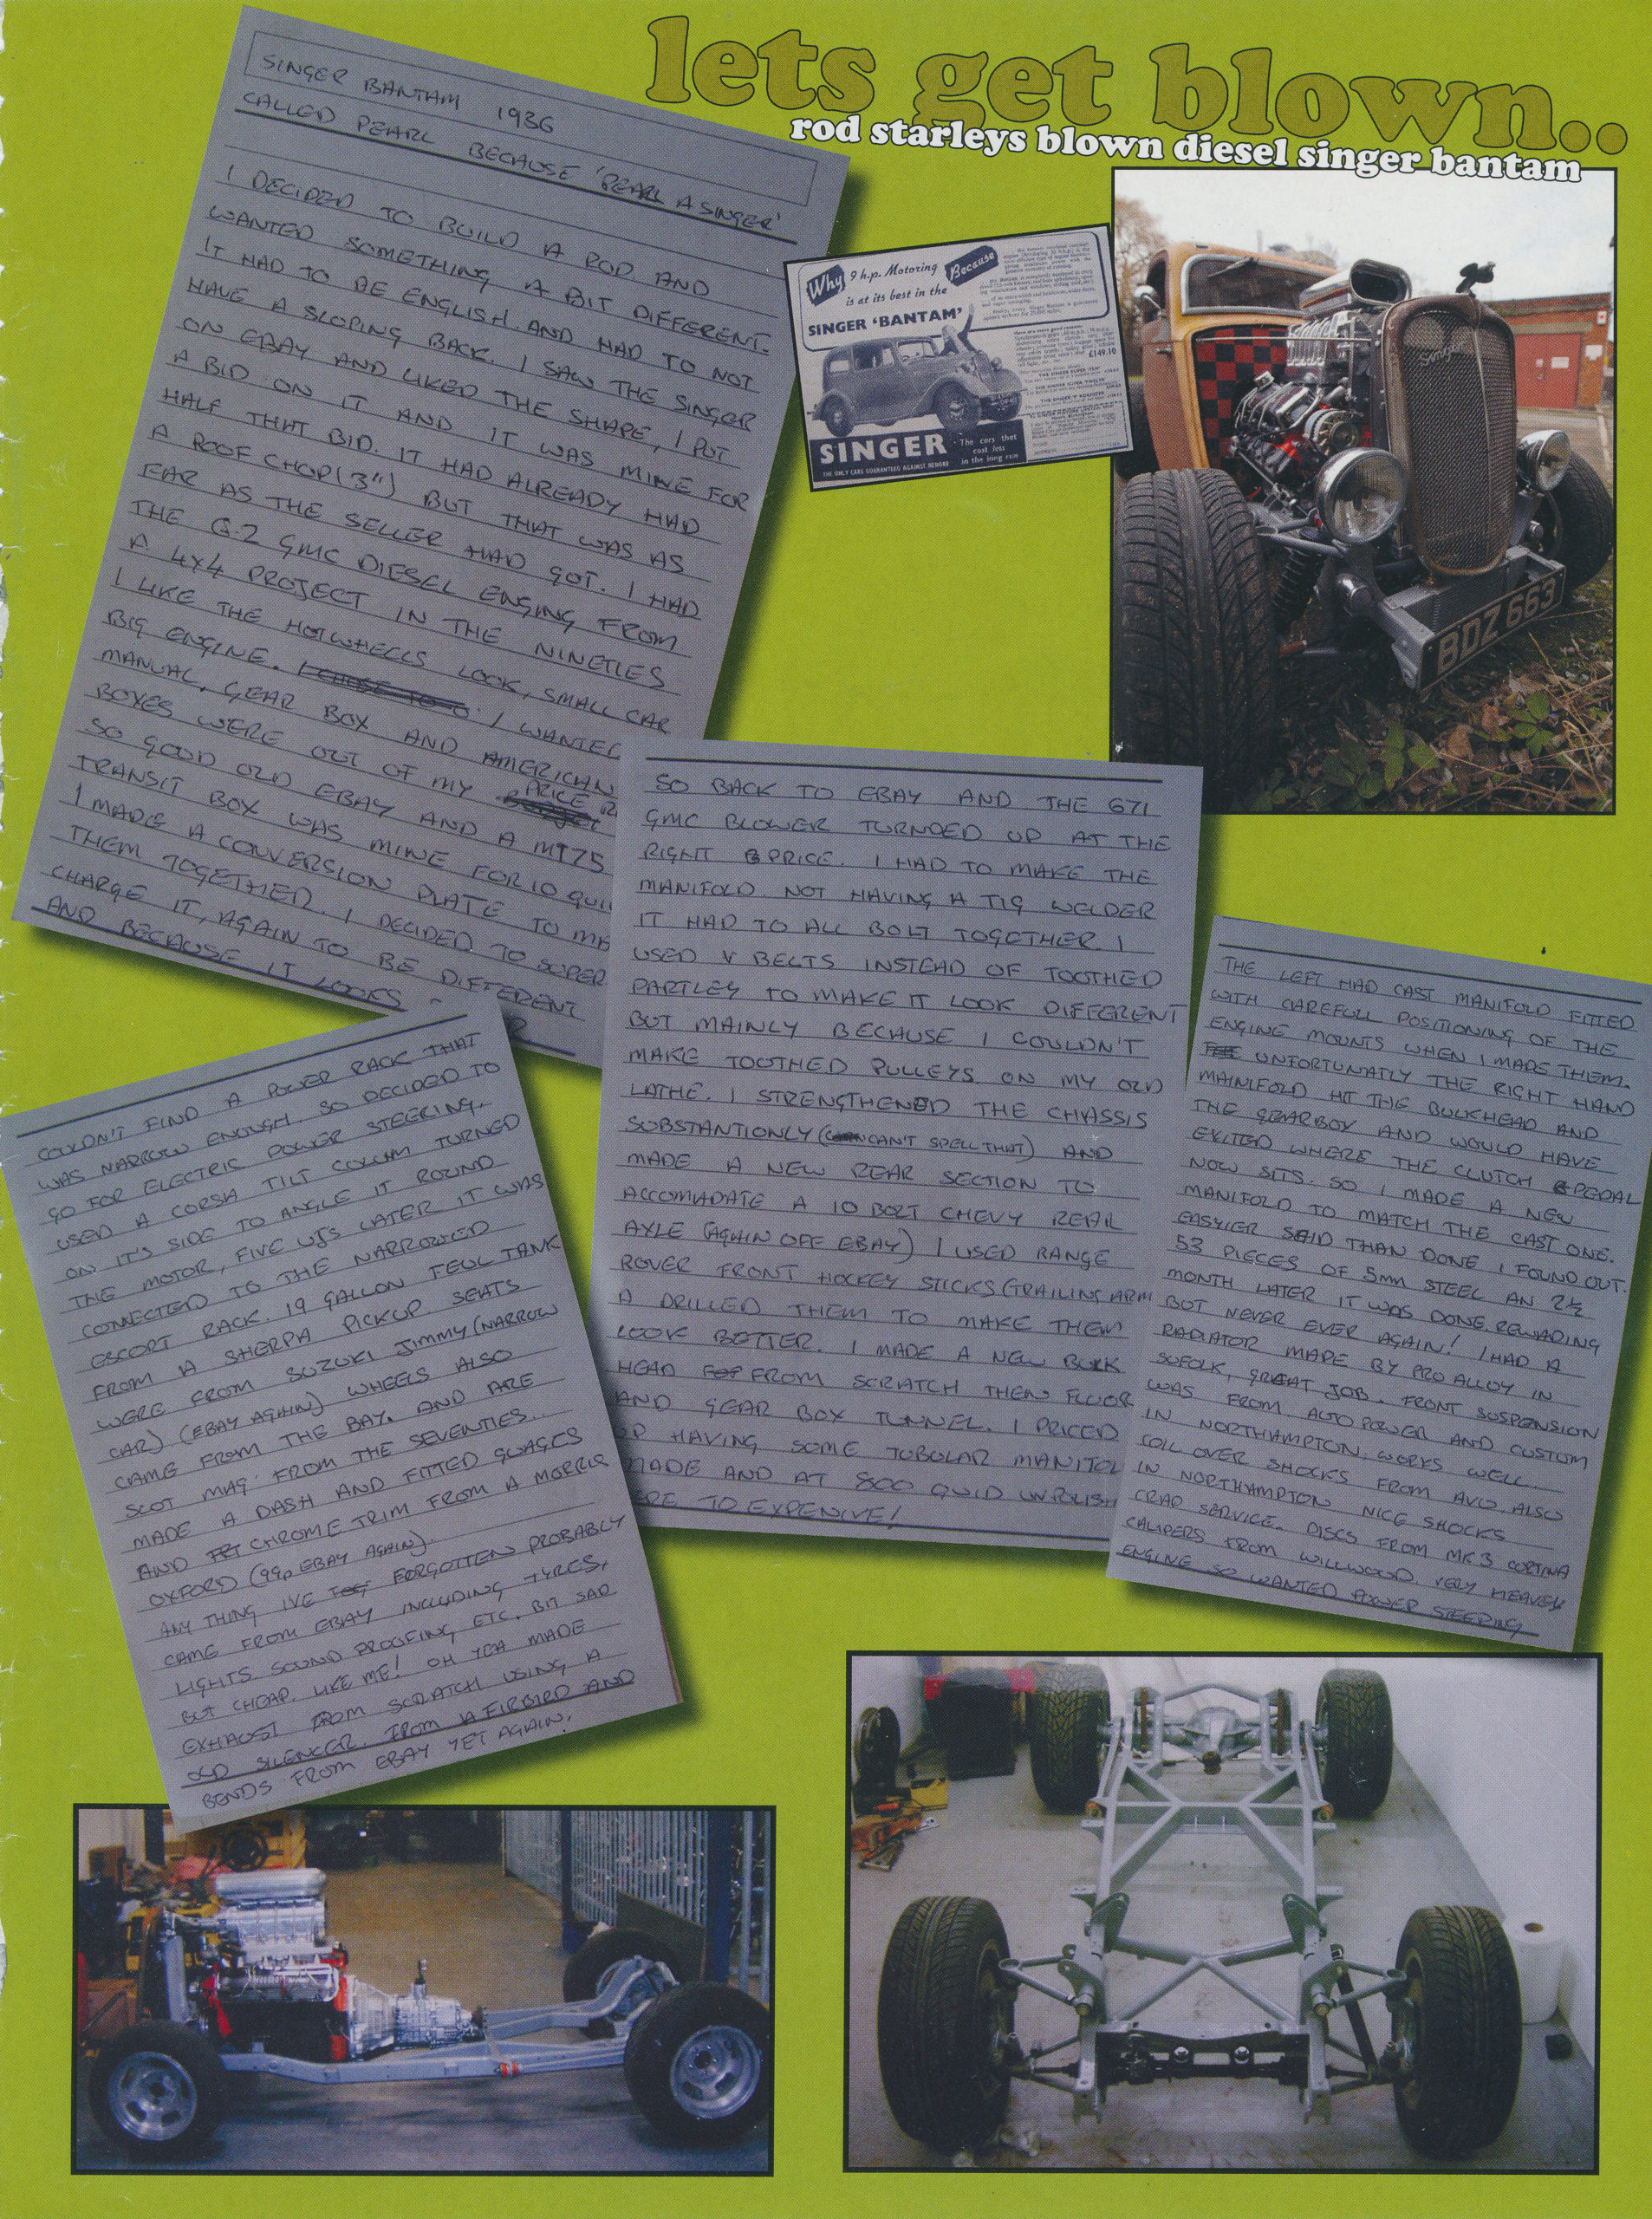 lets get blown..
rod starleys blown diesel singer bantam
SINGER BANTAM 1936
CALLED PEARL BECAUSE 'PEARL A SINGER'
I DECIDED TO BUILD A ROD AND
WANTED SOMETHING A BIT DIFFERENT.
IT HAD TO BE ENGLISH AND HAD TO NOT
HAVE A SLOPING BACK. I SAW THE SINGER
ON EBAY AND LIKED THE SHAPE, I PUT
A BID ON IT AND IT WAS MINE FOR
HALF THAT BID. IT HAD ALREADY HAD
A ROOF CHOP (3") BUT THAT WAS AS
FAR AS THE SELLER HAD GOT. I HAD
THE 6.2 GMC DIESEL ENGINE FROM
A 4X4 PROJECT IN THE NINETIES
I LIKE THE HOTWHEELS LOOK, SMALL CAR
BIG ENGINE. I WANTED
MANUAL, GEAR BOX AND AMERICAN
BOXES WERE OUT OF MY PRICE
SO GOOD OLD EBAY AND A MT75
TRANSIT BOX WAS MINE FOR 10 QUI
I MADE A CONVERSION PLATE TO MA
THEM TOGETHER. I DECIDED TO SUPER
CHARGE IT, AGAIN TO BE DIFFERENT
AND BECAUSE IT LOOKS -
Why 9 h.p. Motoring
is at its best in the
Because
SINGER 'BANTAM'
£149.10
SINGER
The cars that
cost less
in the long run
THE ONLY CARS GUARANTEED AGAINST
Singer
BDZ 663
SO BACK TO EBAY AND THE 671
GMC BLOWER TURNDED UP AT THE
RIGHT PRICE. I HAD TO MAKE THE
MANIFOLD. NOT HAVING A TIG WELDER
IT HAD TO ALL BOLT TOGETHER. I
USED V BELTS INSTEAD OF TOOTHED
PARTLEY TO MAKE IT LOOK DIFFERENT
BUT MAINLY BECAUSE I COULDN'T
MAKE TOOTHED PULLEYS ON MY OLD
LATHE. I STRENGTHENED THE CHASSIS
SUBSTANTIONLY (CAN'T SPELL THAT) AND
MADE A NEW REAR SECTION TO
ACCOMADATE A 10 BOLT CHEVY REAR
AXLE (AGAIN OFF EBAY) I USED RANGE
ROVER FRONT HOCKEY STICKS (TRAILING ARM
A DRILLED THEM TO MAKE THEM
LOOK BETTER. I MADE A NEW BULK
HEAD FROM SCRATCH THEN FLOOR
AND GEAR BOX TUNNEL. I PRICED
UP HAVING SOME TUBULAR MANIFOL
MADE AND AT 800 QUID UNPOLISH
ERE TO EXPENIVE!
THE LEFT HAD CAST MANIFOLD FITTED
WITH CAREFULL POSITIONING OF THE
ENGINE MOUNTS WHEN I MADE THEM.
UNFORTUNATLY THE RIGHT HAND
MAINIFOLD HIT THE BULKHEAD AND
THE GEARBOX AND WOULD HAVE
EXITED WHERE THE CLUTCH PEDAL
NOW SITS. SO I MADE A NEW
MANIFOLD TO MATCH THE CAST ONE.
EASYIER SAID THAN DONE I FOUND OUT.
53 PIECES OF 5mm STEEL AN 2½
MONTH LATER IT WAS DONE, REWARING
BUT NEVER EVER AGAIN! I HAD A
RADIATOR MADE BY PRO ALLOY IN
SUFOLK, GREAT JOB. FRONT SUSPENSION
WAS FROM AUTO POWER AND CUSTOM
IN NORTHAMPTON, WORKS WELL.
COIL OVER SHOCKS FROM AVO, ALSO
IN NORTHAMPTON NICE SHOCKS
CRAP SERVICE. DISCS FROM MK3 CORTINA
CALIPERS FROM WILLWOOD. VERY HEAVEY
ENGINE SO WANTED POWER STEERING
COULDN'T FIND A POWER RACK THAT
WAS NARROW ENOUGH. SO DECIDED TO
GO FOR ELECTRIC POWER STEERING.
USED A CORSA TILT COLUM TURNED
ON IT'S SIDE TO ANGLE IT ROUND
THE MOTOR, FIVE UJS LATER IT WAS
CONNECTED TO THE NARROWED
ESCORT RACK. 19 GALLON FEUL TANK
FROM A SHERPA PICKUP SEATS
WERE FROM SUZUKI JIMMY (NARROW
CAR) (EBAY AGAIN) WHEELS ALSO
CAME FROM THE BAY. AND ARE
SLOT MAG. FROM THE SEVENTIES.
MADE A DASH AND FITTED GUAGES
AND CHROME TRIM FROM A MORRIS
OXFORD (99p EBAY AGAIN).
ANY THING I'VE FORGOTTEN PROBABLY
CAME FROM EBAY INCLUDING TYRES,
LIGHTS SOUND PROOFING ETC. BIT SAD
BUT CHEAP, LIKE ME! OH YEA MADE
EXHAUST FROM SCRATCH USING A
OLD SILENCER FROM A FIREBIRD AND
BENDS FROM EBAY YET AGAIN.